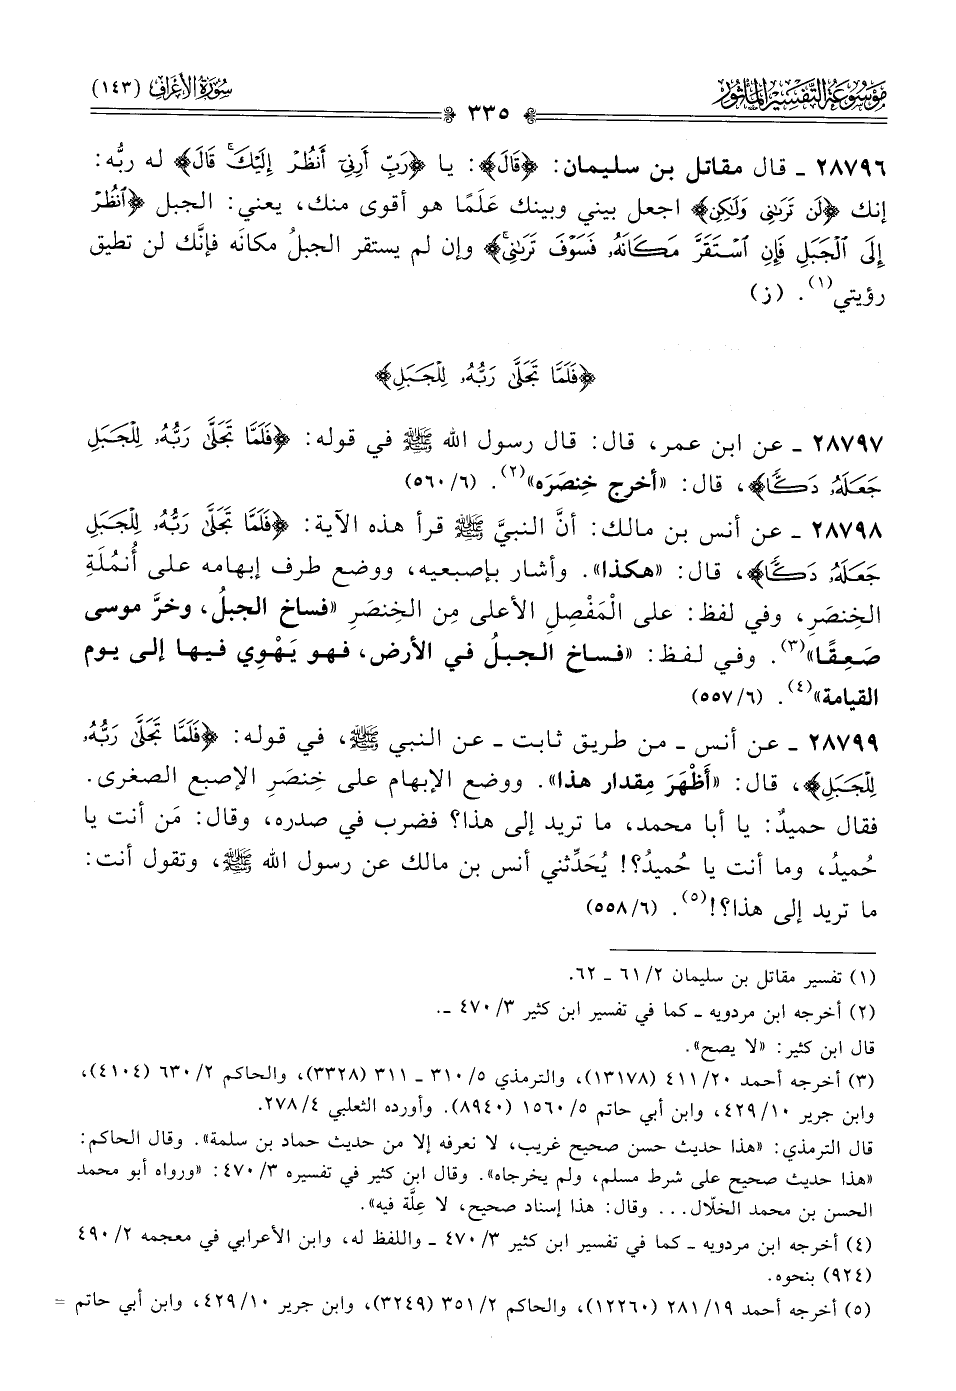 موسوعة التفسير المأثور
سورة الأعراف (١٤٣)
٣٣٥
٢٨٧٩٦ ـ قال مقاتل بن سليمان: ﴿قَالَ﴾: يا ﴿رَبِّ أَرِنِىٓ أَنظُرْ إِلَيْكَۚ قَالَ﴾ له ربُّه:
إنك ﴿لَن تَرَىٰنِى وَلَـٰكِنِ﴾ اجعل بيني وبينك عَلَمًا هو أقوى منك، يعني: الجبل ﴿ٱنظُرْ
إِلَى ٱلْجَبَلِ فَإِنِ ٱسْتَقَرَّ مَكَانَهُۥ فَسَوْفَ تَرَىٰنِىۚ﴾ وإن لم يستقر الجبلُ مكانَه فإنَّك لن تطيق
رؤيتي(١). (ز)
﴿فَلَمَّا تَجَلَّىٰ رَبُّهُۥ لِلْجَبَلِ﴾
٢٨٧٩٧ ـ عن ابن عمر، قال: قال رسول الله ﷺ في قوله: ﴿فَلَمَّا تَجَلَّىٰ رَبُّهُۥ لِلْجَبَلِ
جَعَلَهُۥ دَكًّا﴾، قال: «أخرج خِنصَرَه»(٢). (٦/٥٦٠)
٢٨٧٩٨ ـ عن أنس بن مالك: أنَّ النبيَّ ﷺ قرأ هذه الآية: ﴿فَلَمَّا تَجَلَّىٰ رَبُّهُۥ لِلْجَبَلِ
جَعَلَهُۥ دَكًّا﴾، قال: «هكذا». وأشار بإصبعيه، ووضع طرف إبهامه على أُنمُلَةِ
الخِنصَرِ، وفي لفظ: على الْمَفْصِلِ الأعلى مِن الخِنصَرِ «فساخ الجبلُ، وخرَّ موسى
صَعِقًا»(٣). وفي لفظ: «فساخ الجبلُ في الأرض، فهو يَهْوِي فيها إلى يوم
القيامة»(٤). (٦/٥٥٧)
٢٨٧٩٩ ـ عن أنس ـ من طريق ثابت ـ عن النبي ﷺ، في قوله: ﴿فَلَمَّا تَجَلَّىٰ رَبُّهُۥ
لِلْجَبَلِ﴾، قال: «أَظْهَرَ مِقدار هذا». ووضع الإبهام على خِنصَرِ الإصبع الصغرى.
فقال حميدٌ: يا أبا محمد، ما تريد إلى هذا؟ فضرب في صدره، وقال: مَن أنت يا
حُميدُ، وما أنت يا حُميدُ؟! يُحَدِّثني أنس بن مالك عن رسول الله ﷺ، وتقول أنت:
ما تريد إلى هذا؟!(٥). (٦/٥٥٨)
(١) تفسير مقاتل بن سليمان ٢/٦١ ـ ٦٢.
(٢) أخرجه ابن مردويه ـ كما في تفسير ابن كثير ٣/٤٧٠ ـ.
قال ابن كثير: «لا يصح».
(٣) أخرجه أحمد ٢٠/٤١١ (١٣١٧٨)، والترمذي ٥/٣١٠ ـ ٣١١ (٣٣٢٨)، والحاكم ٢/٦٣٠ (٤١٠٤)،
وابن جرير ١٠/٤٢٩، وابن أبي حاتم ٥/١٥٦٠ (٨٩٤٠). وأورده الثعلبي ٤/٢٧٨.
قال الترمذي: «هذا حديث حسن صحيح غريب، لا نعرفه إلا من حديث حماد بن سلمة». وقال الحاكم:
«هذا حديث صحيح على شرط مسلم، ولم يخرجاه». وقال ابن كثير في تفسيره ٣/٤٧٠: «ورواه أبو محمد
الحسن بن محمد الخلّال... وقال: هذا إسناد صحيح، لا عِلَّة فيه».
(٤) أخرجه ابن مردويه ـ كما في تفسير ابن كثير ٣/٤٧٠ ـ واللفظ له، وابن الأعرابي في معجمه ٢/٤٩٠
(٩٢٤) بنحوه.
(٥) أخرجه أحمد ١٩/٢٨١ (١٢٢٦٠)، والحاكم ٢/٣٥١ (٣٢٤٩)، وابن جرير ١٠/٤٢٩، وابن أبي حاتم =